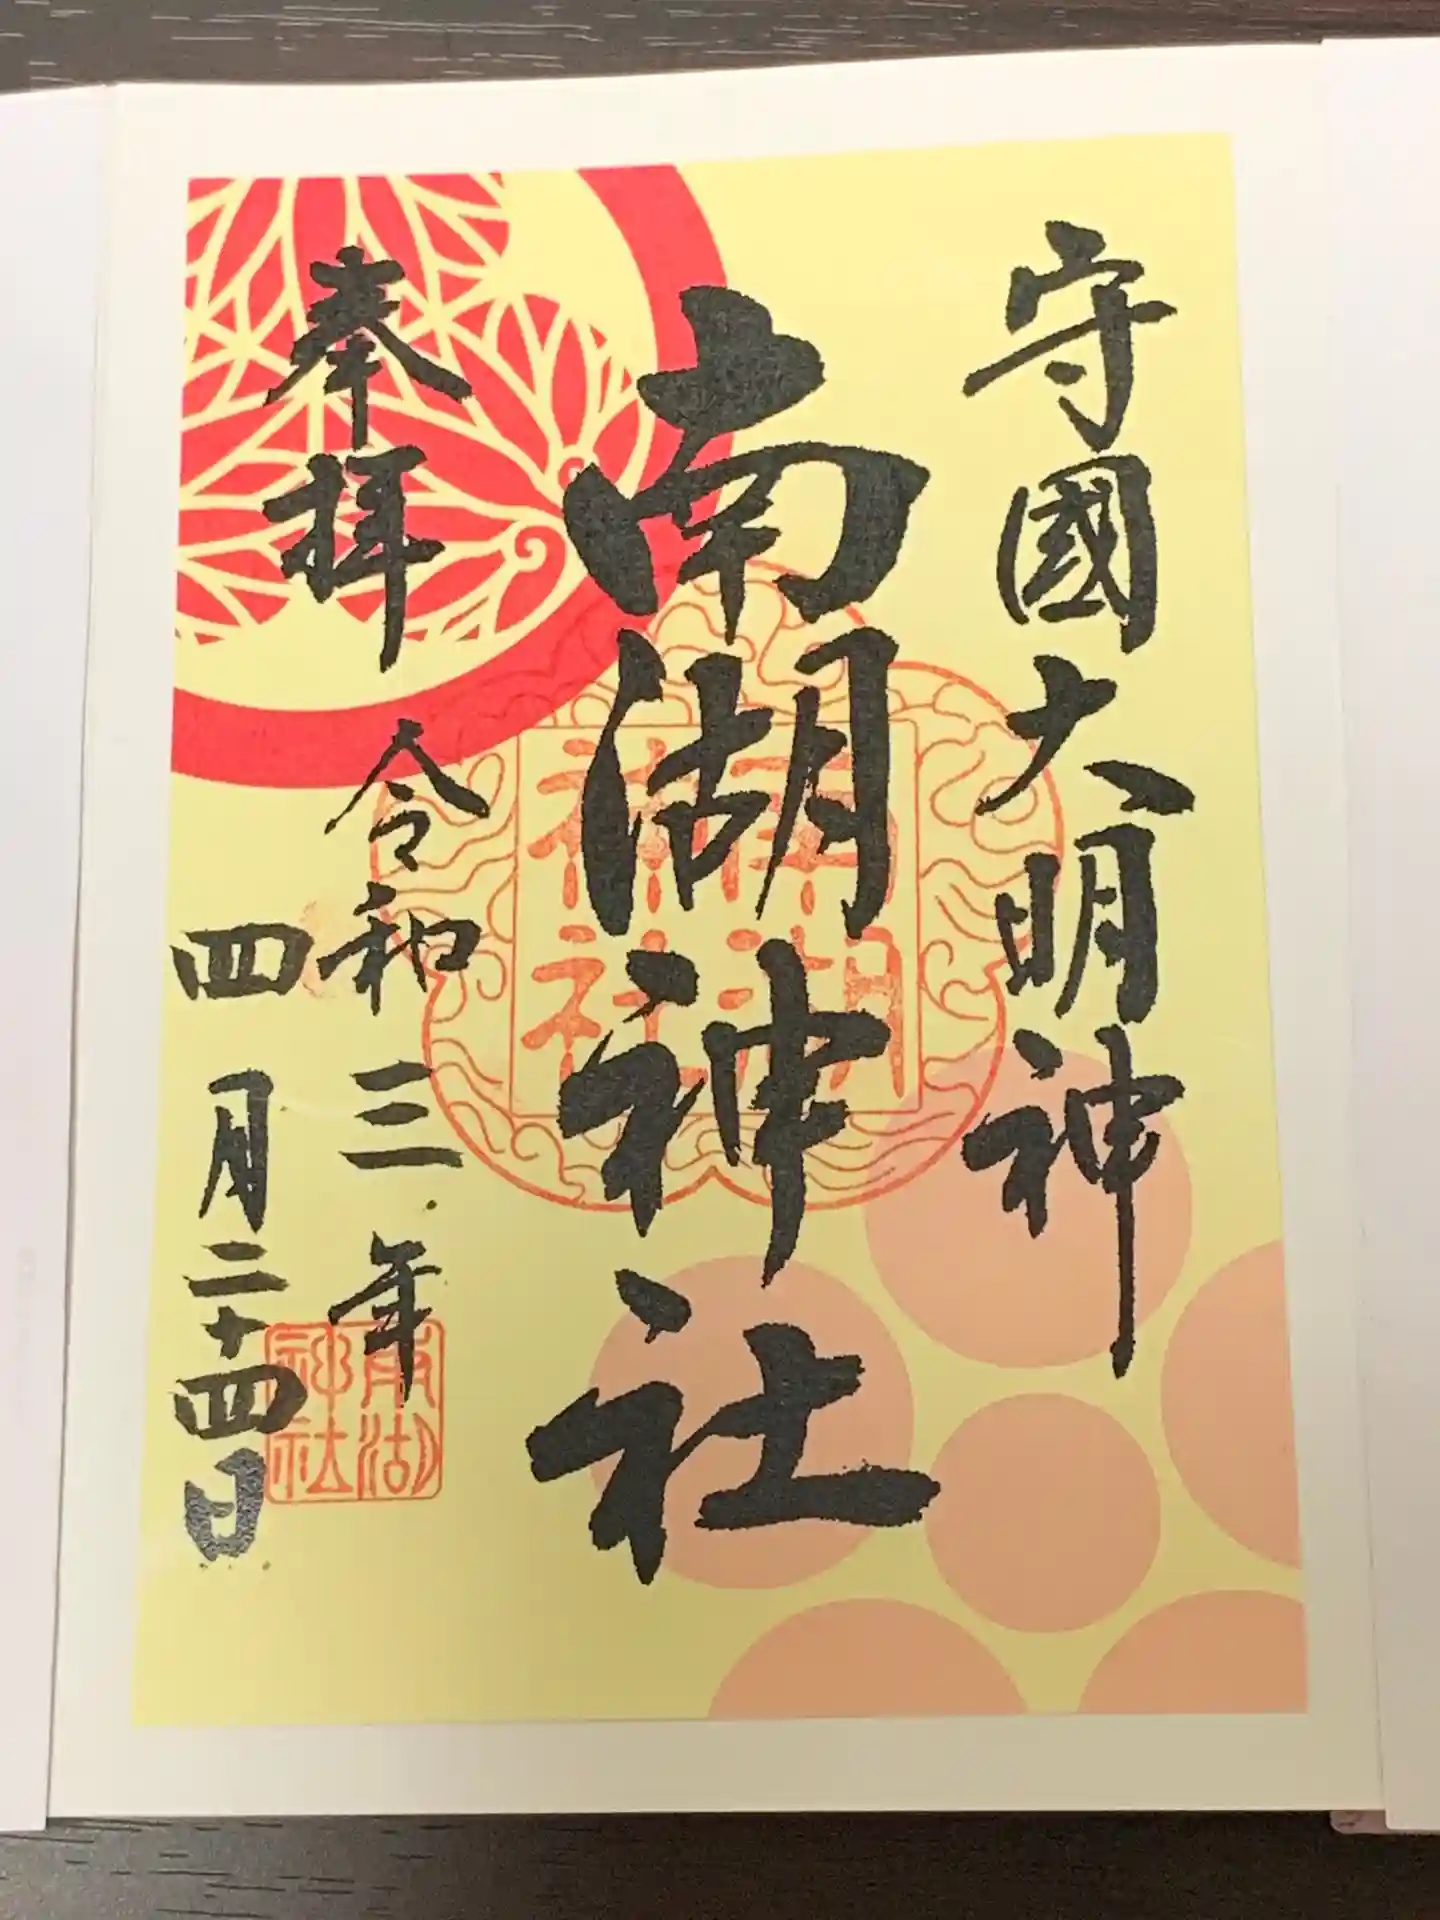 守國大明神
南湖神社
奉拝
令和三年
四月二十四日
南湖
神社
南湖
神社